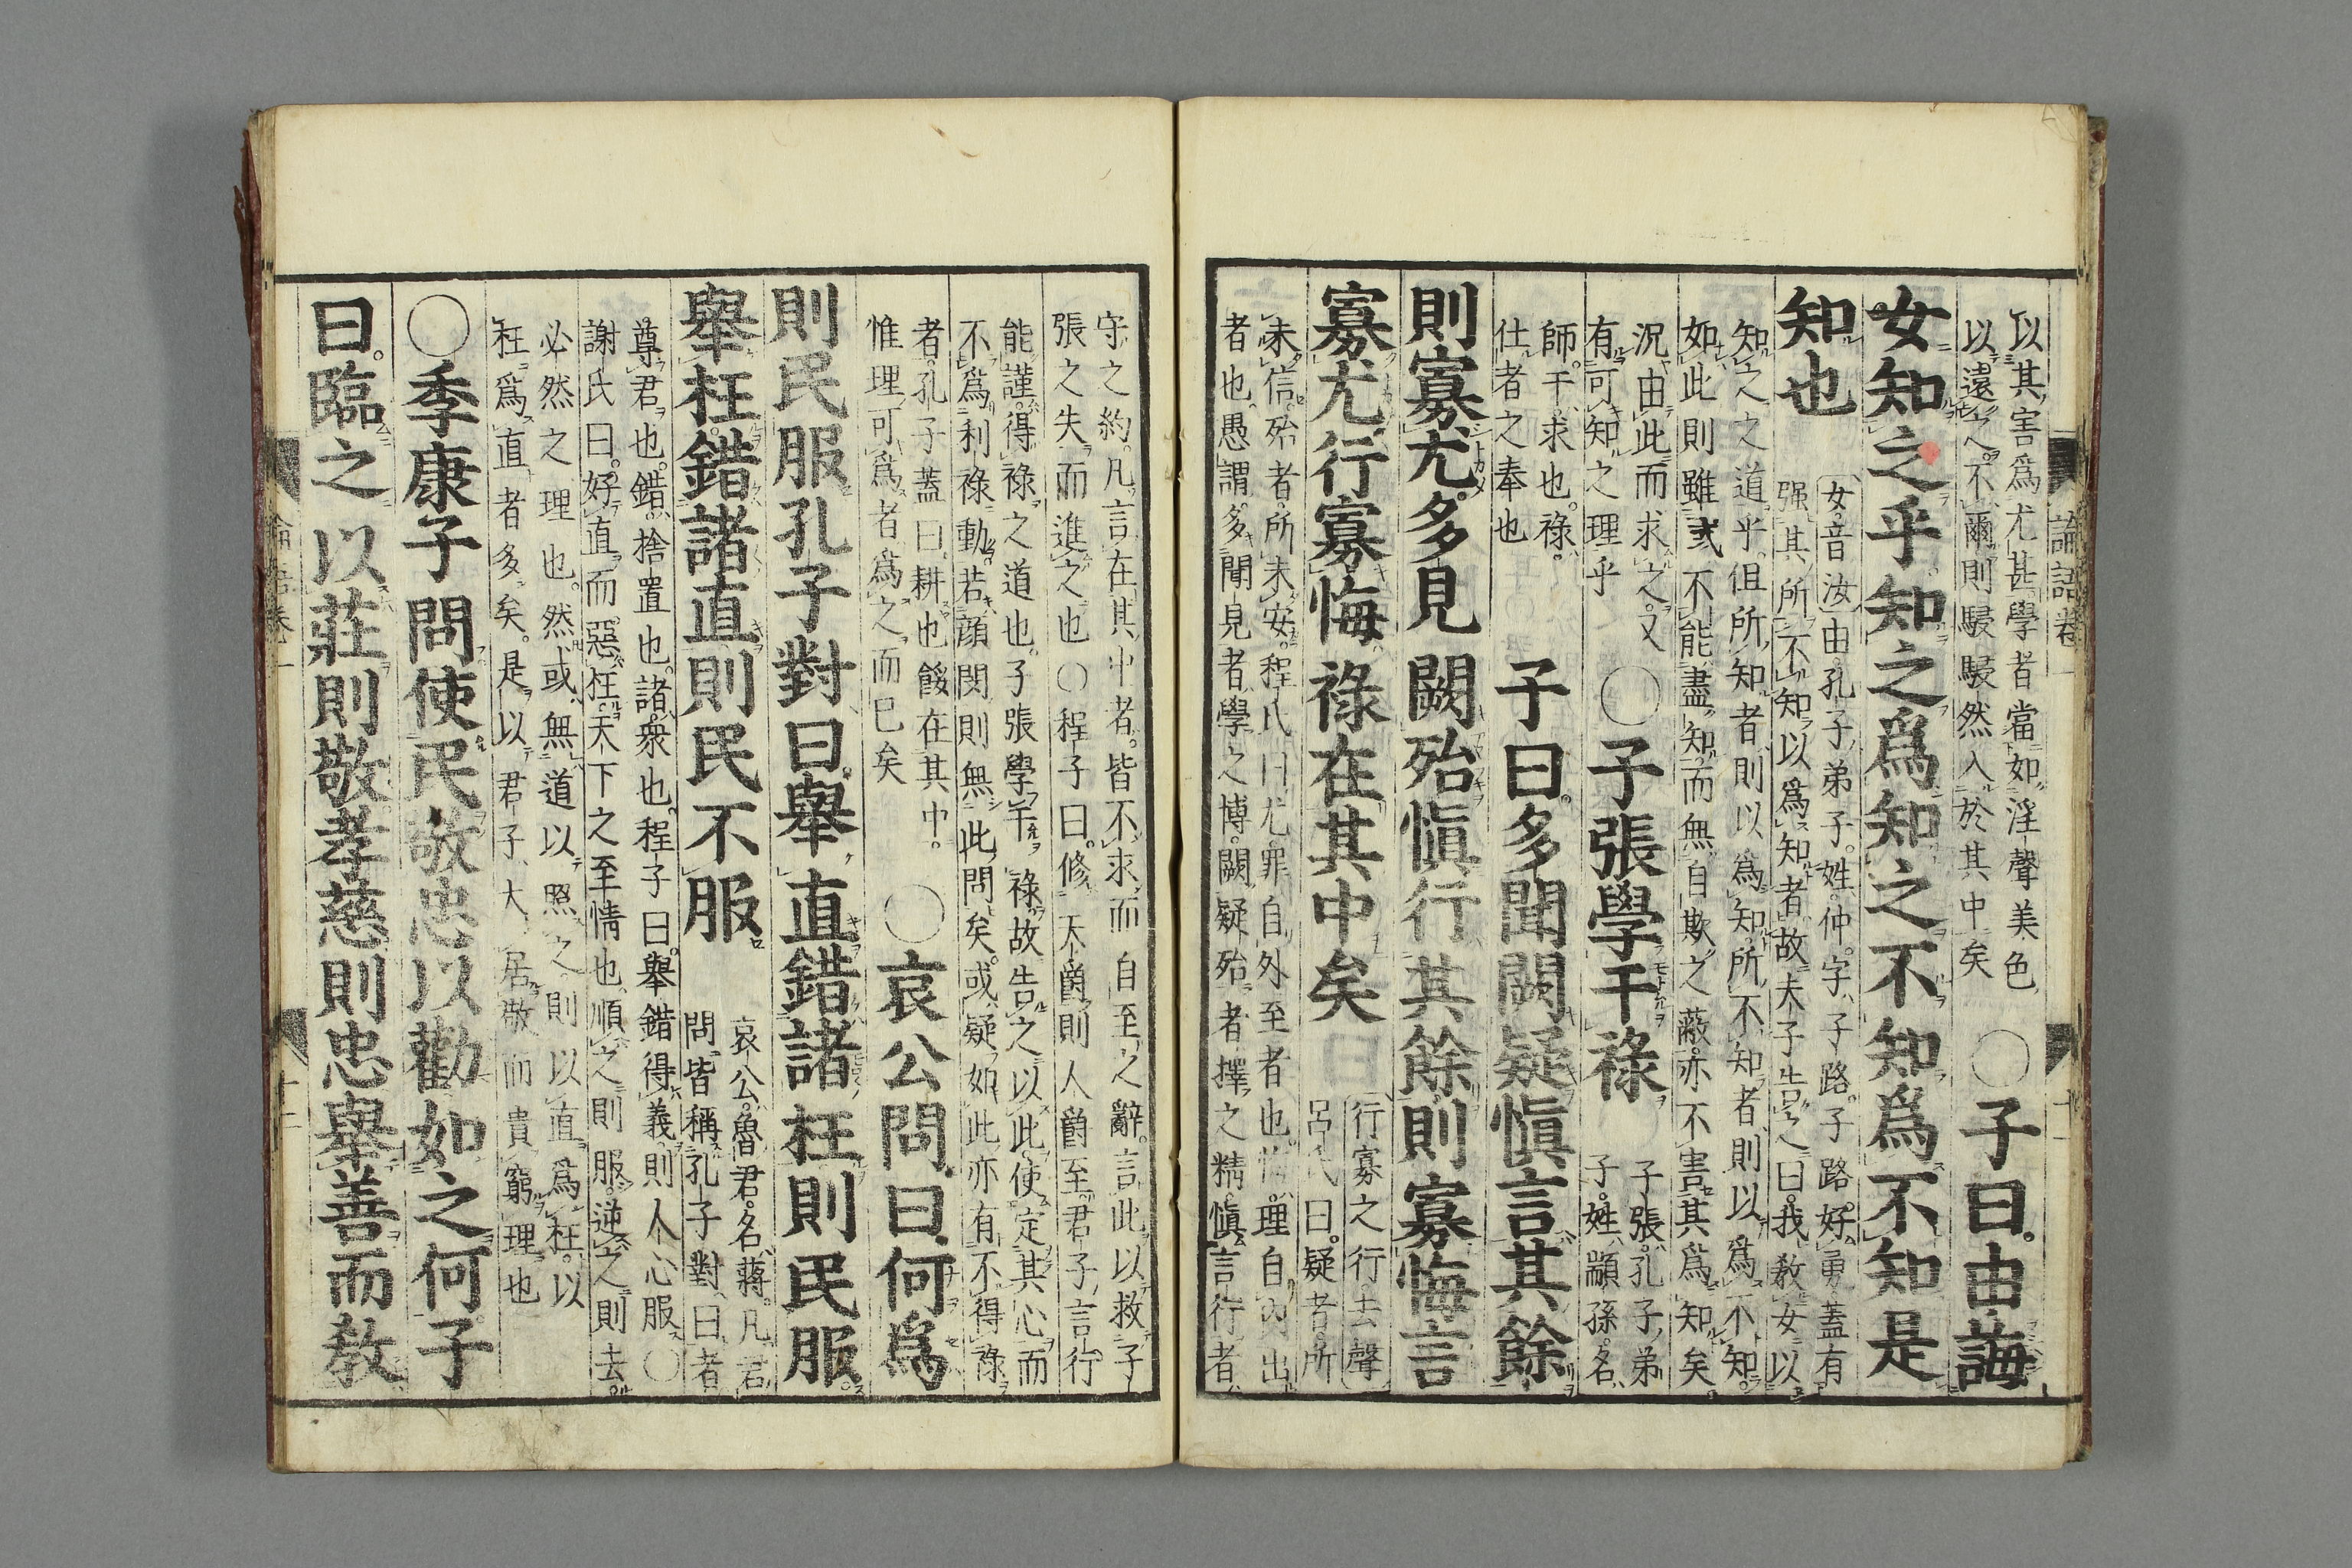 論語卷一
十一
以其害爲尤甚學者當如淫聲美色
以遠之。不爾則駸駸然入於其中矣
○子曰。由誨
女知之乎知之爲知之不知爲不知是
知也
女音汝由孔子弟子。姓仲。字子路。子路好勇蓋有
强其所不知以爲知者故夫子告之曰。我教女以
知之之道乎。但所知者則以爲知所不知者則以爲不知。
如此則雖或不能盡知而無自欺之蔽。亦不害其爲知矣。
況由此而求之。又
有可知之理乎
○子張學干祿
子張。孔子弟
子。姓顓孫。名
師。干求也。祿。
仕者之奉也
子曰。多聞闕疑愼言其餘
則寡尤。多見闕殆愼行其餘則寡悔言
寡尤行寡悔祿在其中矣
行寡之行去聲
呂氏曰。疑者所
未信。殆者所未安。程氏曰尤罪自外至者也悔。理自內出
者也。愚謂。多聞見者學之博。闕疑殆者擇之精。愼言行者
守之約。凡言在其中者。皆不求而自至之辭。言此以救子
張之失而進之也○程子曰。修天爵則人爵至。君子言行
能謹。得祿之道也。子張學干祿故告之以此使定其心而
不爲利祿動。若顏閔則無此問矣。或疑如此亦有不得祿
者。孔子蓋曰耕也餒在其中。
惟理可爲者爲之而已矣
○哀公問曰何爲
則民服孔子對曰。舉直錯諸枉則民服。
舉枉錯諸直則民不服
哀公魯君。名蔣。凡君
問皆稱孔子對曰者
尊君也。錯捨置也。諸衆也。程子曰。舉錯得義則人心服○
謝氏曰。好直而惡枉。天下之至情也順之則服。逆之則去。
必然之理也。然或無道以照之則以直爲枉。以
枉爲直者多矣。是以君子大居敬而貴窮理也
○季康子問使民敬忠以勸如之何子
曰。臨之以莊則敬孝慈則忠舉善而敎
論語卷一
十一